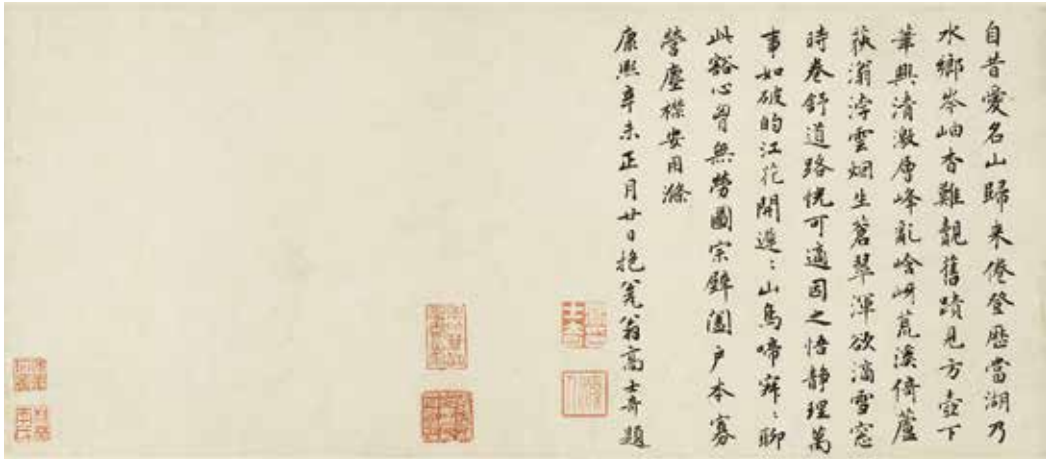 自昔愛名山歸来倦登歷當湖乃
水鄉岑岫杳難覩舊蹟見方壺下
筆興清激層峰亂崯岈荒溪倚蘆
荻滃浡雲烟生蒼翠渾欲滴雪窓
時卷舒道路恍可適因之悟靜理萬
事如破的江花開遲〻山鳥啼寂〻聊
此豁心胷無勞圖宗錍闔戶本寡
營塵襟安用滌
康熙辛未正月廿日抱瓮翁高士奇題